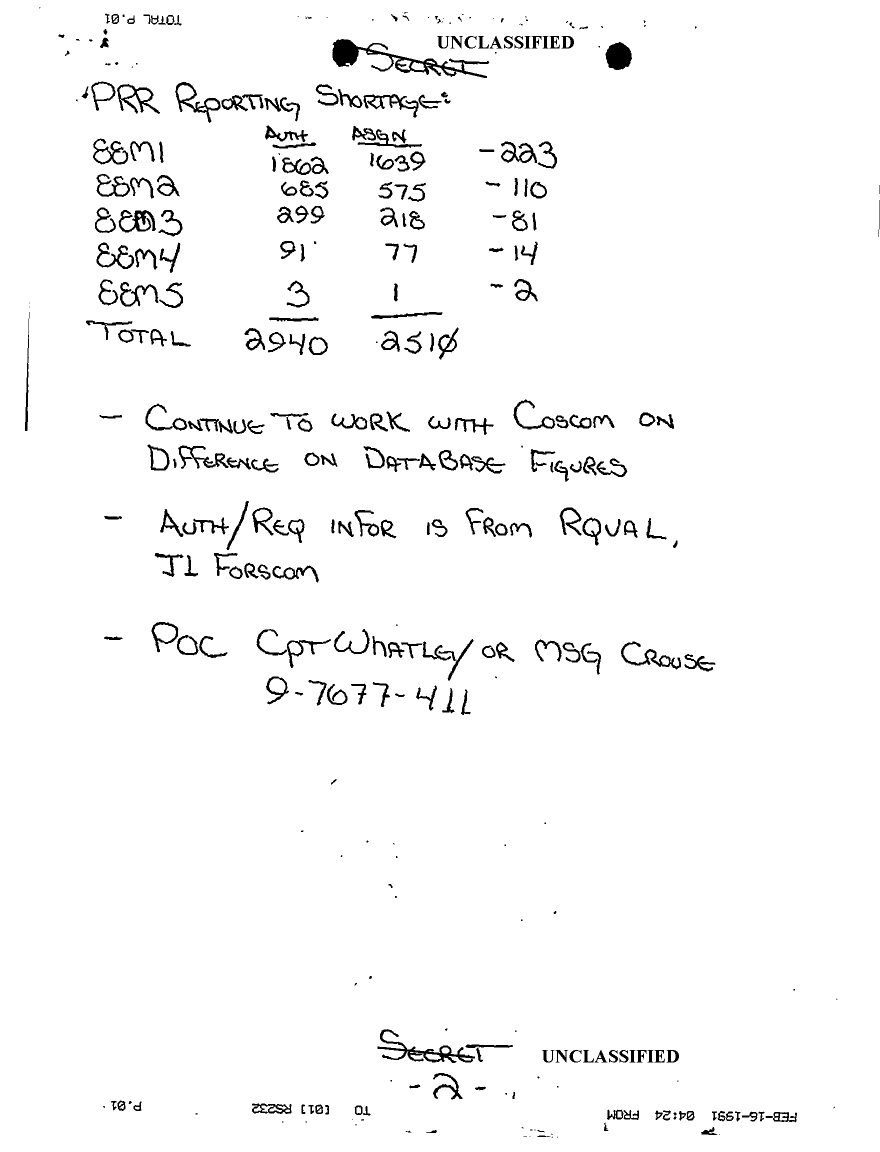 TOTAL P.01
UNCLASSIFIED
SECRET
PRR REPORTING SHORTAGE:
AUTH ASGN
88M1 1862 1639 -223
88M2 685 575 -110
88M3 299 218 -81
88M4 91 77 -14
88M5 3 1 -2
TOTAL 2940 2510
- CONTINUE TO WORK WITH COSCOM ON
DIFFERENCE ON DATABASE FIGURES
- AUTH/REQ INFOR IS FROM RQUAL,
J1 FORSCOM
- POC CPT WHATLEY/OR MSG CROUSE
9-7677-411
SECRET UNCLASSIFIED
-2-
FEB-16-1991 04:24 FROM TO [01] RS232 P.01